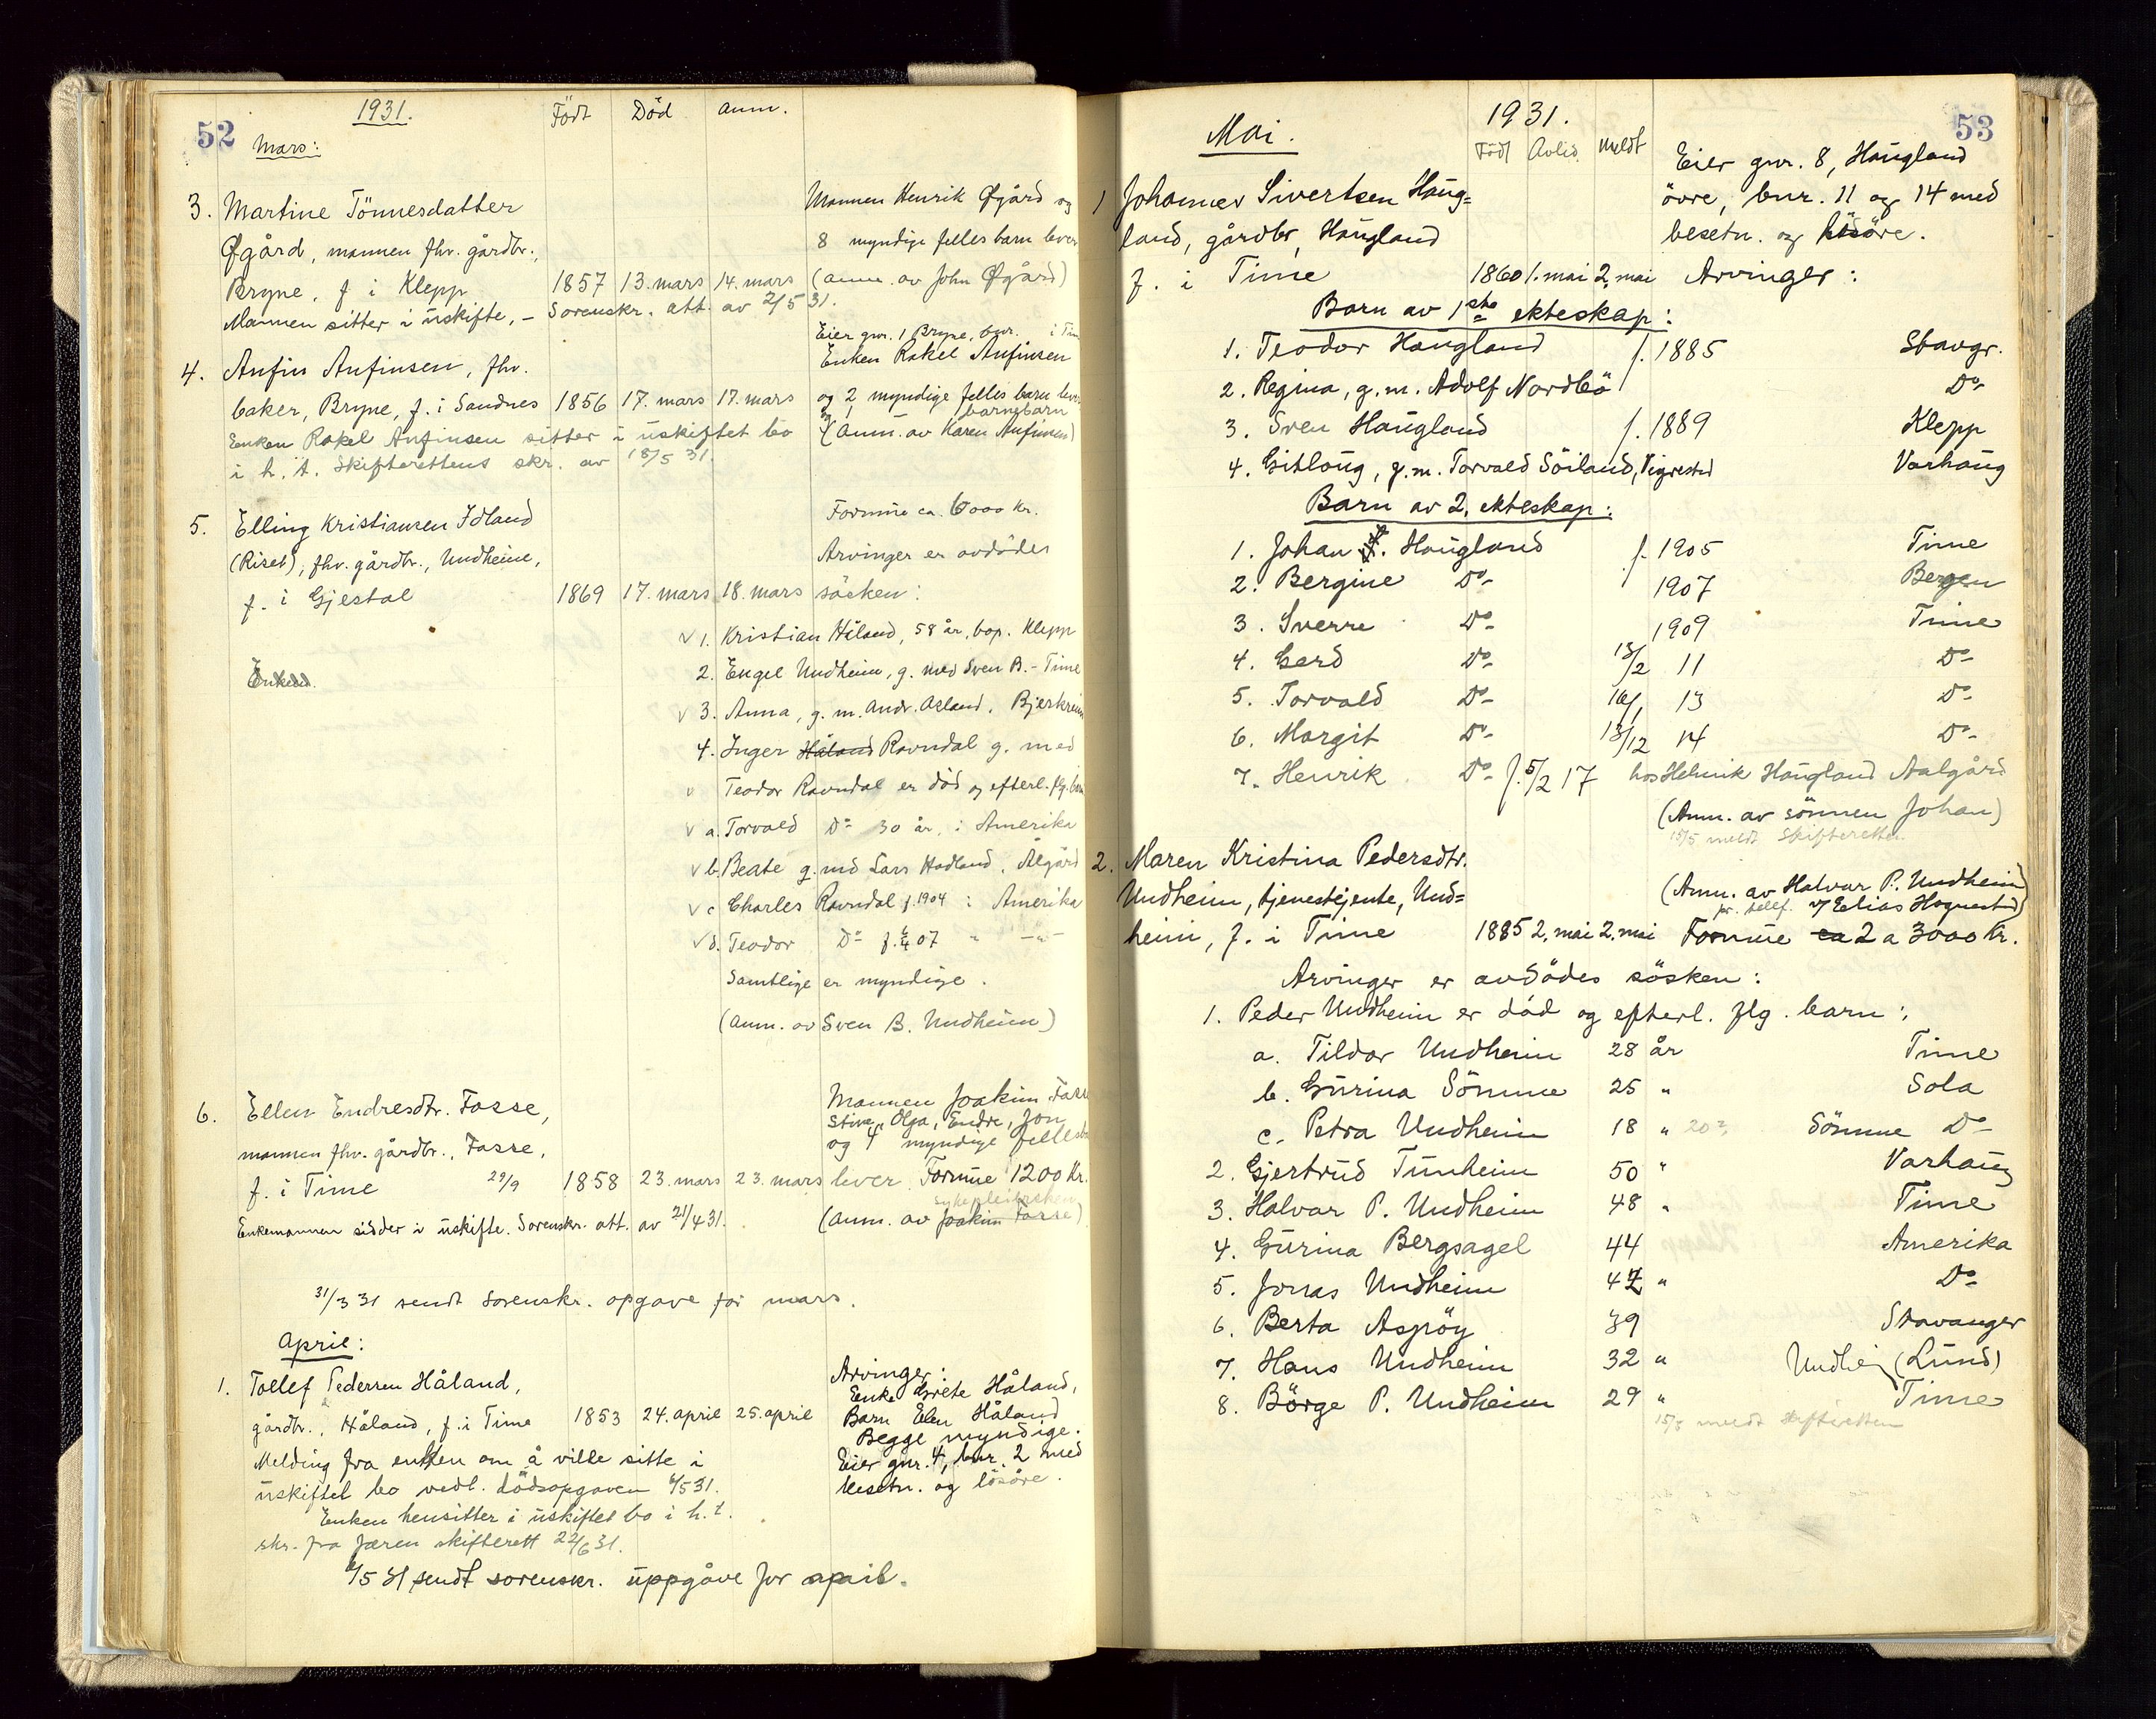 52
1931. Födt Död anm.
Mars:
3. Martine Tönnesdatter
Øgård, mannen fhv. gårdbr.,
Bryne, f i Klepp 1857 13. mars 14. mars
Mannen sitter i uskifte, – Sorenskr. att. av 2/5 31.
Mannen Henrik Øgård og
8 myndige felles barn lever
(anm. av John Øgård)
4. Anfin Anfinsen, fhv.
baker, Bryne, f. i Sandnes 1856 17. mars 17. mars
Enken Rakel Anfinsen sitter i uskiftet bo
i h. t. Skifterettens skr. av 18/5 31.
Eier gnr. 1 Bryne, bnr. i Time
Enken Rakel Anfinsen
og 2 myndige felles barn lever
og 1 barnebarn
(anm. av Karen Anfinsen)
5. Elling Kristiansen Idland
(Riset), fhv. gårdbr., Undheim,
f. i Gjestal 1869 17. mars 18. mars
Formue ca. 6000 kr.
Arvinger er avdödes
sösken:
v 1. Kristian Håland, 58 år, bop. Klepp
Enkem.
2. Engel Undheim, g. med Sven B. - Time
v 3. Anna, g. m. Andr. Asland, Bjerkreim
4. Inger Håland Ravndal g. med
v Teodor Ravndal er död og efterl. flg. barn
v a. Torvald Do 30 år, i Amerika
v b. Beate g. med Lars Hadland, Ålgård
v c Charles Ravndal f. 1904 i Amerika
v d. Teodor Do f. 6/4 07 " -"-
Samtlige er myndige.
(anm. av Sven B. Undheim)
6. Ellen Endresdtr. Fosse,
mannen fhv. gårdbr., Fosse,
f. i Time 29/9 1858 23. mars 23. mars
Enkemannen sidder i uskifte. Sorenskr. att. av 21/4 31.
Mannen Joakim Fosse
Stine, Olga, Endre, Jon
og 4 myndige fellesbarn
lever Formue 1200 kr.
sykepleiersken
(anm. av Joakim Fosse)
31/3 31 sendt sorenskr. opgave for mars.
April:
1. Tollef Pedersen Håland,
gårdbr., Håland, f. i Time 1853 24. april 25. april
Melding fra enken om å ville sitte i
uskiftet bo vedl. dödsopgaven 6/5 31.
Enken hensitter i uskiftet bo i h. t.
skr. fra Jæren skifterett 22/6 31.
Arvinger:
Enke Grete Håland,
Barn Elen Håland
Begge myndige.
Eier gnr. 4, bnr. 2 med
besetn. og lösöre.
6/5 31 sendt sorenskr. uppgåve for april.
53
1931.
Mai. Födt Avlid. Meldt
1 Johannes Sivertsen Haug=
land, gårdbr, Haugland
f. i Time 1860 1. mai 2. mai
Eier gnr. 8, Haugland
övre, bnr. 11 og 14 med
besetn. og lösöre.
Arvinger:
Barn av 1ste ekteskap:
1. Teodor Haugland f. 1885 Stavgr.
2. Regina, g. m. Adolf Nordbö Do
3. Sven Haugland f. 1889 Klepp
4. Gitlaug, g. m. Torvald Söiland, Vigrestad Varhaug
Barn av 2. ekteskap:
1. Johan Haugland f. 1905 Time
2. Bergine Do 1907 Bergen
3. Sverre Do 1909 Time
4. Gerd Do 13/2 11 Do
5. Torvald Do 16/1 13 Do
6. Margit Do 13/12 14 Do
7. Henrik Do f. 5/2 17 hos Helmik Haugland Aalgård
(Anm. av sönnen Johan)
15/5 meldt Skifteretten
2. Maren Kristina Pedersdtr.
Undheim, tjenestejente, Und=
heim, f. i Time 1885 2. mai 2. mai
(Anm. av Halvar P. Undheim
pr. telef. v/ Elias Hognestad)
Formue ca 2 a 3000 kr.
Arvinger er avdödes sösken:
1. Peder Undheim er död og efterl. flg. barn:
a. Tildar Undheim 28 år Time
b. Gurina Sömme 25 " Sola
c. Petra Undheim 18 " 20? Sömme Do
2. Gjertrud Tunheim 50 " Varhaug
3. Halvar P. Undheim 48 " Time
4. Gurina Bergsagel 44 Amerika
5. Jonas Undheim 42 " Do
6. Berta Aspöy 39 Stavanger
7. Hans Undheim 32 " Undheim (Lund)
8. Börge P. Undheim 29 " Time
15/5 meldt skifteretten